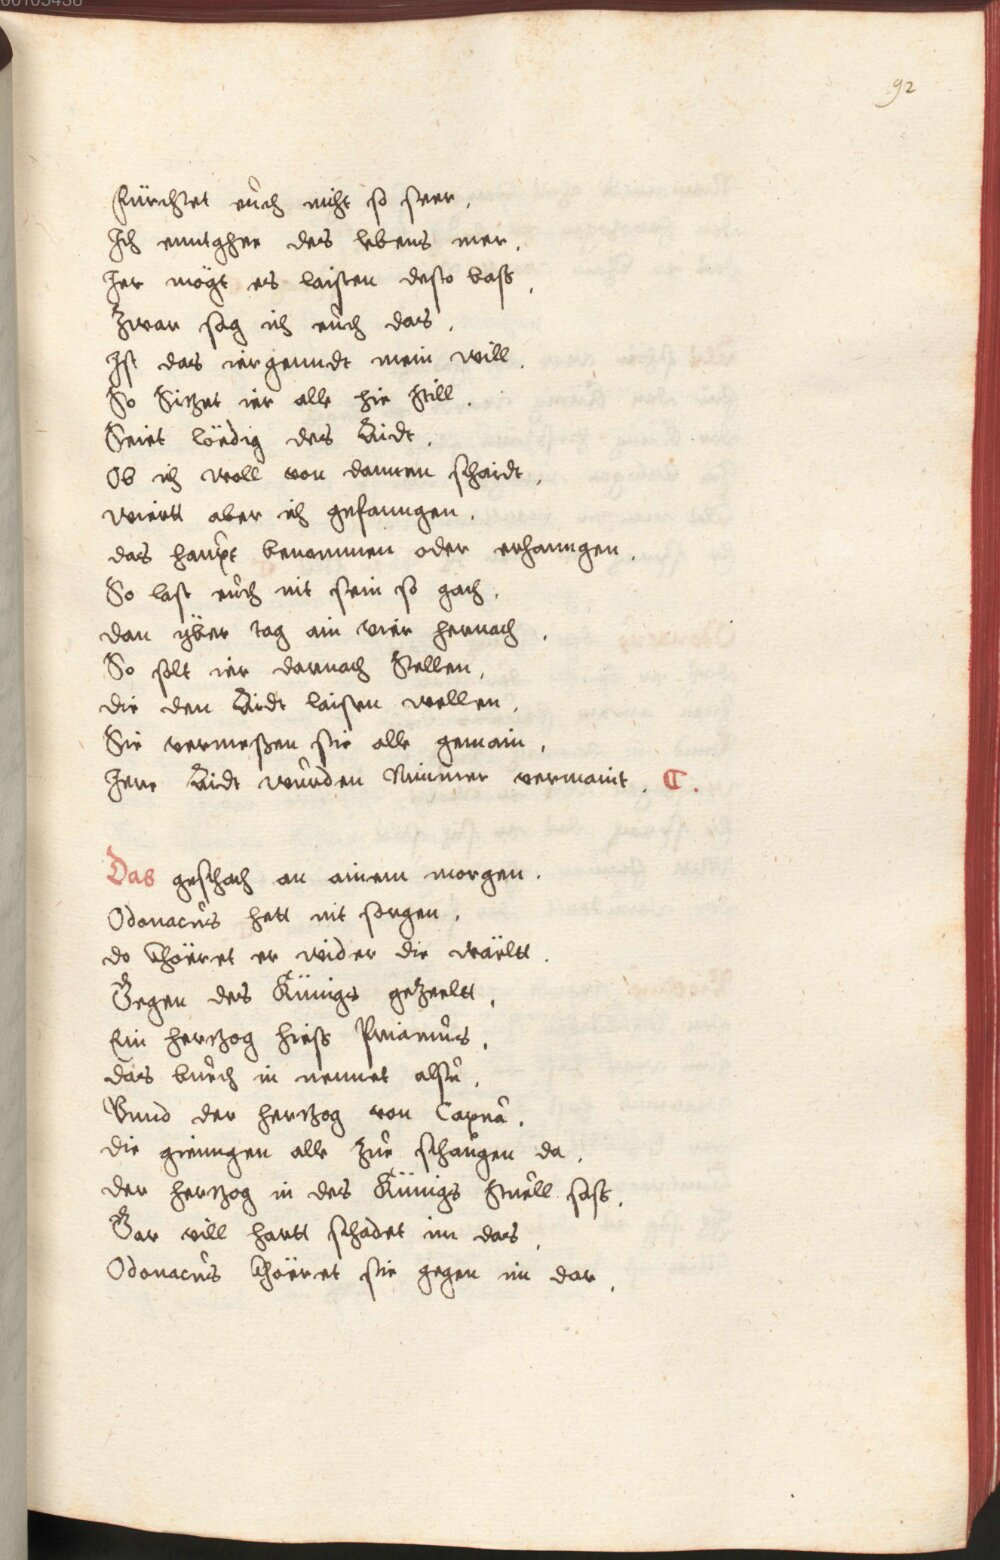 00105438
92
Fürchtet euch nicht so seer,
Ich enntghee des lebens mer,
Jer mögt es laisten desto bass,
Zwar sag ich euch das,
Ist das iergenndt mein will,
So Sitzet ier alle hie Still,
Seiet löedig des Aidt,
Ob ich woll von dannen schaidt,
wiertt aber ich gefanngen,
das haupt benommen oder erhanngen,
So last euch nit sein so gach,
dan yber tag ain vier hernach,
So solt ier darnach Stellen,
die den Aidt laisten wellen,
Sie vermessen sie alle gemain,
Jere Aidt wurden Nimmer vermaint, C.
Das geschach an ainem morgen.
Odonacus hett nit sorgen,
do khöeret er wider die wäeltt.
Gegen des Künigs gezeeltt,
Ein hertzog hiess Priamus,
das buech in nennet alsu,
Vnnd der hertzog von Capua,
die giengen alle zue schaugen da,
der hertzog in des Künigs Stuell sass,
Gar vill hartt schadet im das,
Odonacus khöeret sie gegen im dar,